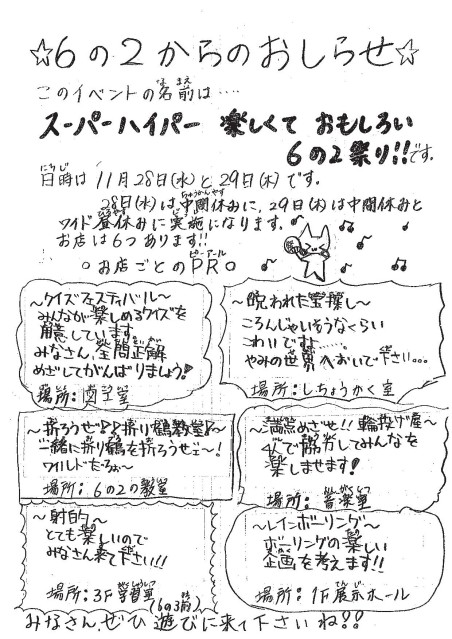 ☆6の2からのおしらせ☆
このイベントの名前は‥‥
スーパーハイパー 楽しくて おもしろい
6の2祭り!!です。
日時は11月28日(水)と29日(木)です。
28日(水)は中間休みに、29日(木)は中間休みと
ワイド昼休みに実施になります。
お店は6つあります!!
○お店ごとのPR○
～クイズフェスティバル～
みんなが楽しめるクイズを
用意しています。
みなさん、全問正解
めざしてがんばりましょう!
場所:
～呪われた宝探し～
ころんじゃいそうなくらい
こわいですよ……。
やみの世界へおいで下さい…。
場所:しちょうかく室
～折ろうぜ!!折り鶴教室～
一緒に折り鶴を折ろうぜェ～!
ワイルドだろぉ～
場所:6の2の教室
～満点めざせ!!輪投げ屋～
4人で協力してみんなを
楽しませます!!
場所:音楽室
～射的～
とても楽しいので
みなさん来て下さい!!
場所:3F学習室
(6の3前)
～レインボーリング～
ボーリングの楽しい
企画を考えます!!
場所:1F展示ホール
みなさん、ぜひ遊びに来て下さいね!!